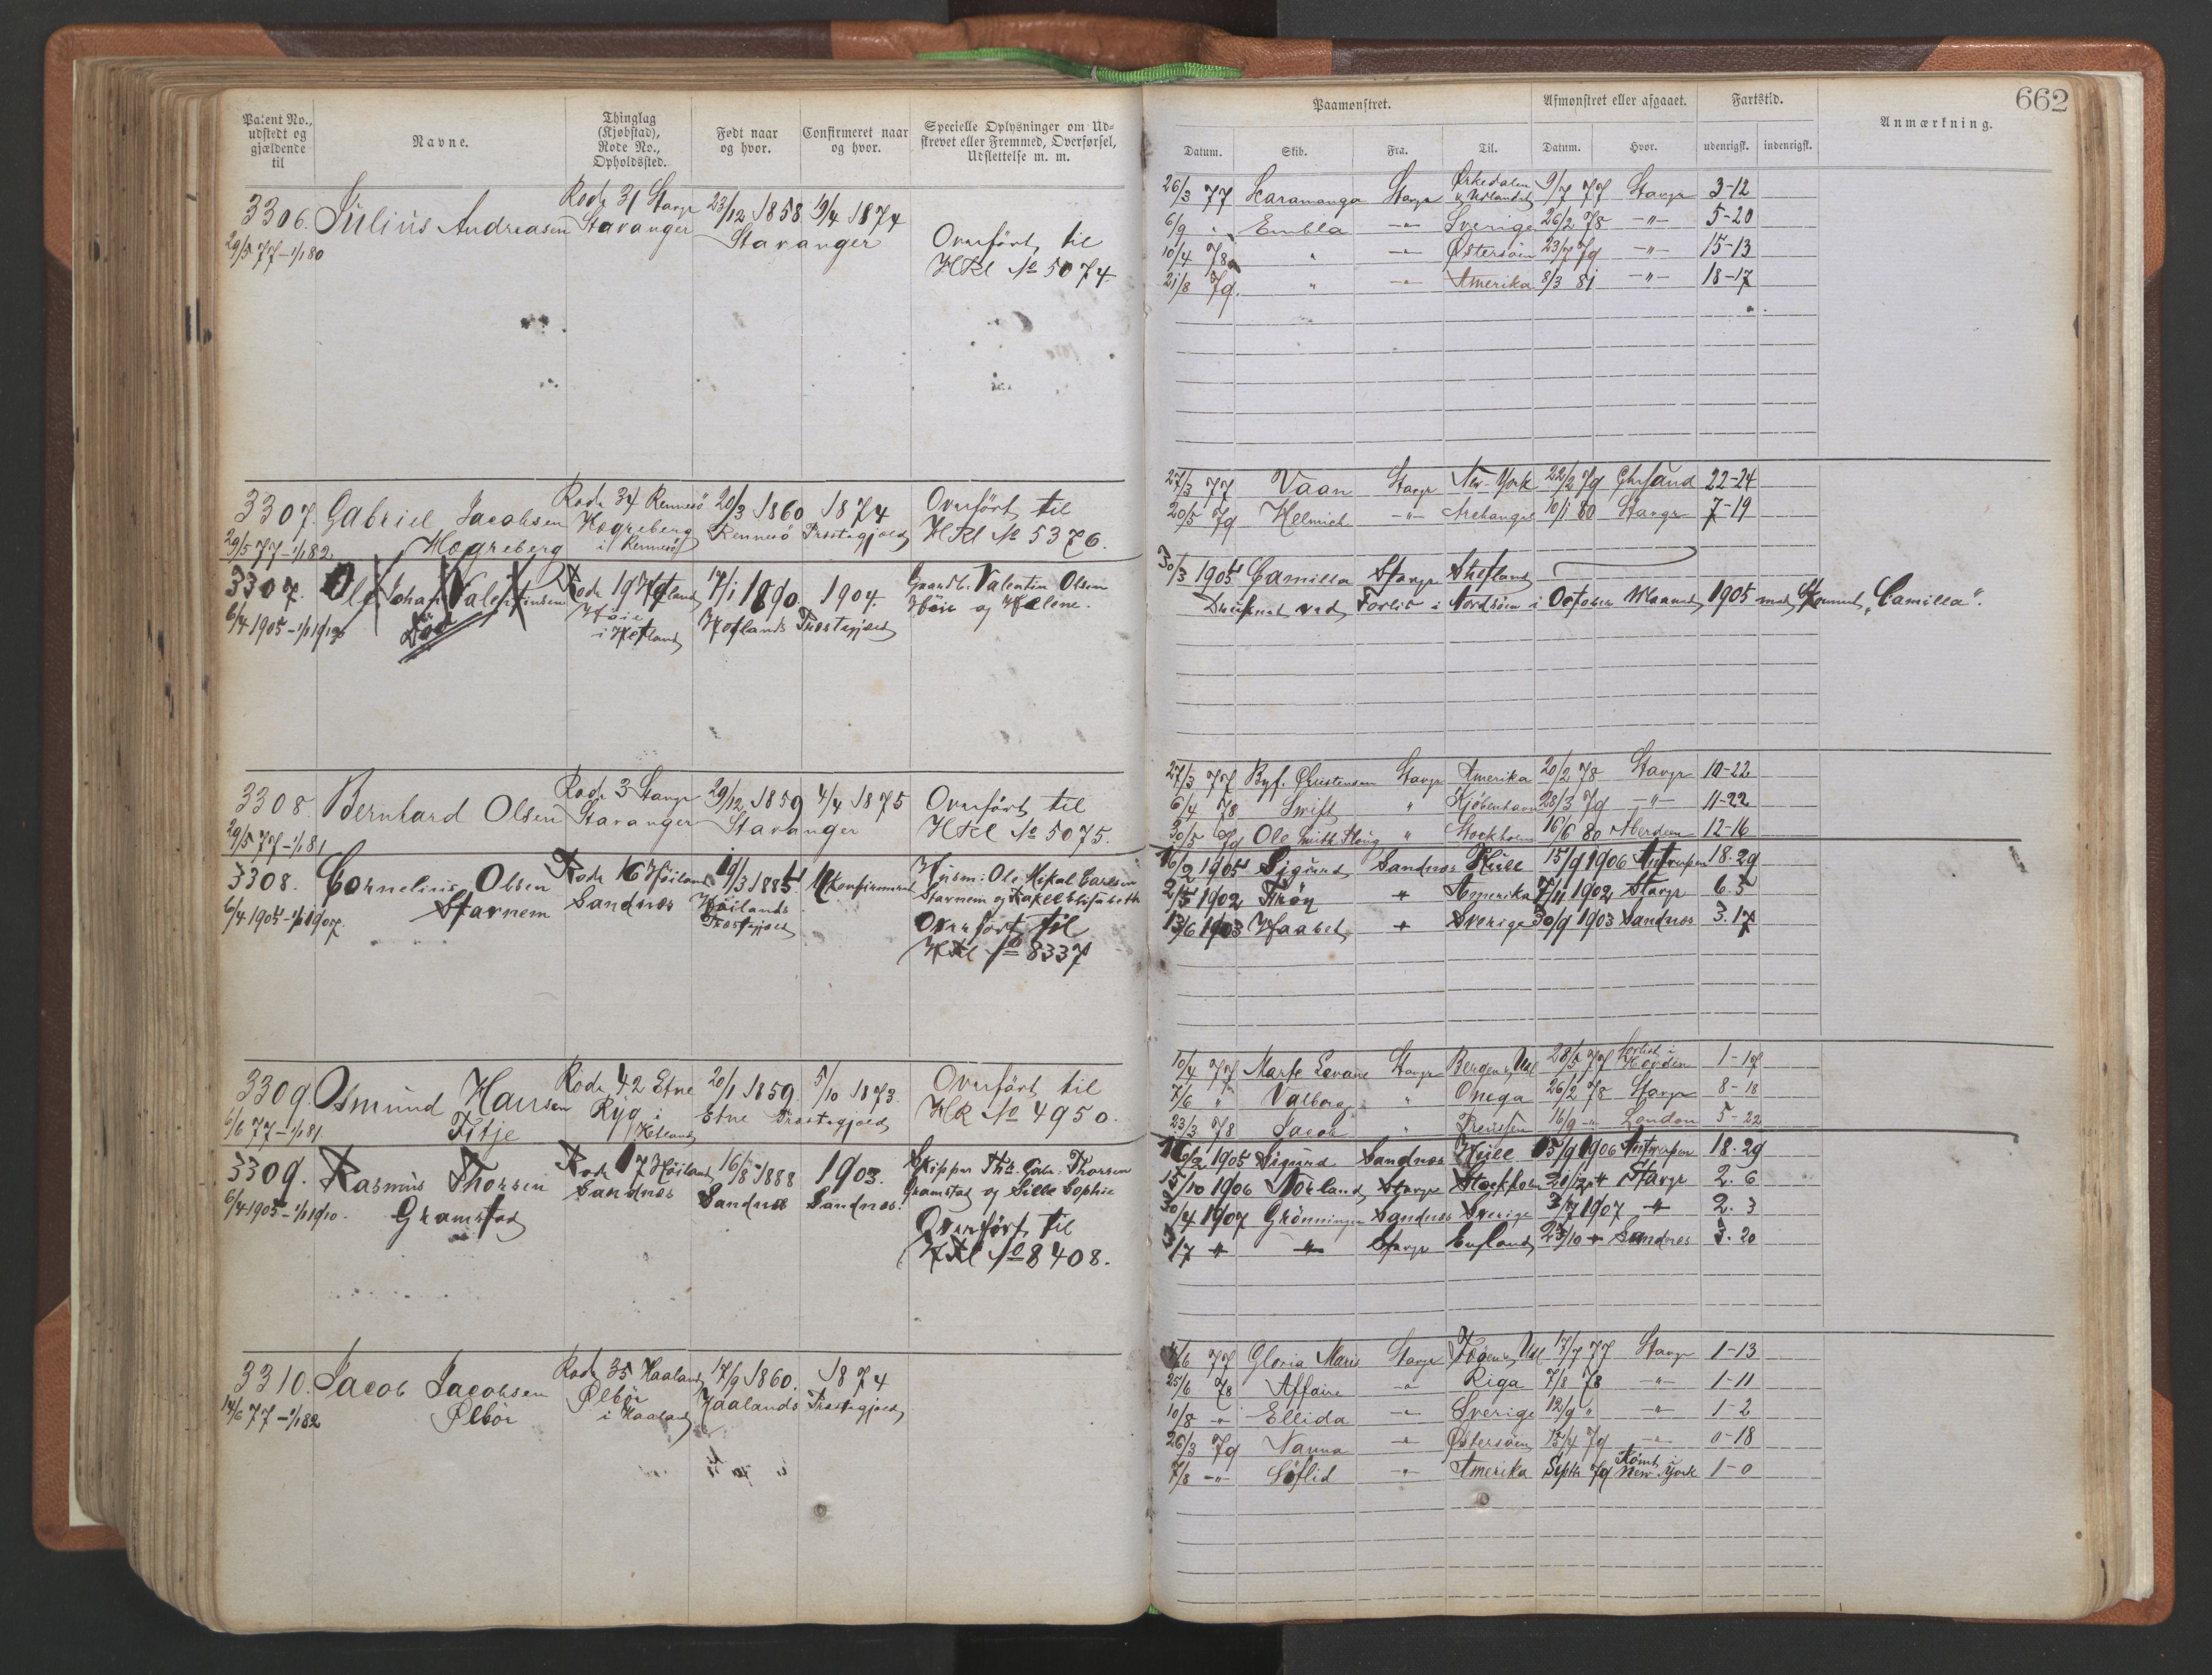 Patent No.,
udstedt og
gjældende
til
Navne.
Thinglag
(Kjøbstad),
Rode No.,
Opholdssted.
Født naar
og hvor.
Confirmeret naar
og hvor.
Specielle Oplysninger om Ud-
skrevet eller Fremmed, Overførsel,
Udslettelse m. m.
3306. Julius Andreasen Rode 31 Stavgr 23/12 1858 9/4 1874
29/5 77-1/1 80 Stavanger Stavanger
Overført til
HRl No 5074.
3307. Gabriel Jacobsen Rode 34 Rennesö 20/3 1860 1874 Overført til
29/5 77-1/1 82. Hogreberg Hogreberg i Rennesö Rennesö Præstegjæld HRl No 5376.
3307. Ole Johan Valentinsen Rode 19 Hetland 17/1 1890. 1904. Valentin Olsen
6/4 1905-1/1 1910 Död Höie i Hetland Hetlands Præstegjæld Höie og Helene.
3308. Bernhard Olsen Rode 3 Stavgr 29/12 1859 4/4 1875 Overført til
29/5 77-1/1 81 Stavanger Stavanger HRl No 5075.
3308. Cornelius Olsen Rode 16 Höiland 19/3 1885. Ukonfirmeret Husm: Ole Mikal Carlsen
6/4 1905-1/1 1907. Starnem Sandnes Höilands Præstegjæld Starnem og Rakel Elisabeth
Overført til
HRl No 8337
3309. Osmund Hansen Rode 42 Etne 20/1 1859. 5/10 1873. Overført til
6/6 77-1/1 81. Fitje Ryg i Hetland Etne Præstegjæld HR No 4950.
3309. Rasmus Thorsen Rode 17 Höiland 16/8 1888 1903. Skipper Ths. Gabr. Thorsen
6/4 1905-1/1 1910. Gramstad Sandnes Sandnes Sandnes. Gramstad og Sille Sophie
Overført til
HRl No 8408.
3310. Jacob Jacobsen Rode 35 Haaland 17/9 1860. 1874
14/6 77-1/1 82 Ølbör Ølbör i Haaland Haalands Præstegjæld
662
Paamonstret.
Afmonstret eller afgaaet.
Fartstid.
Anmærkning.
Datum. Skib. Fra. Til. Datum. Hvor. udenrigsk. indenrigsk.
26/3 77 Caramanga Stavgr Ørkedalen & Udlandet 9/7 77 Stavgr 3-12
6/9 " Embla -"- Sverige 26/2 78 -"- 5-20
10/4 78 " -"- Østersöen 23/7 79 -"- 15-13
21/8 79. " -"- Amerika 8/3 81 -"- 18-17
27/3 77 Vaan Stavgr New-York 22/2 79 Chrsand 22-24
20/5 79 Helmich -"- Archangel 10/1 80 Stavgr 7-19
30/3 1905 Camilla Stavgr Shetland
Druknet ved Forlis i Nordsöen i October Maaned 1905 med Skonnert "Camilla".
27/3 77 Byf. Christensen Stavgr Amerika 20/2 78 Stavgr 10-22
6/4 78 Swift " Kjöbenhavn 28/3 79 -"- 11-22
30/5 79 Ole Smith Ploug " Stockholm 16/6 80 Aberdeen 12-16
16/2 1905 Sigurd Sandnes Hull 15/9 1906 Antwerpen 18.29
2/5 1902 Frön " Amerika 7/11 1902 Stavgr 6.5
13/6 1903 Haabet " Sverige 30/9 1903 Sandnes 3.17
10/4 77 Marse Levane Stavgr Bergen & Udl 28/5 77 Forlist i Norden 1-17
7/6 " Valborg " Onega 26/2 78 Stavgr 8-18
23/3 78 Jacob " Preussen 16/9 -"- London 5-22
16/2 1905 Sigurd Sandnes Hull 15/9 1906 Antwerpen 18.29
15/10 1906 Norland Stavgr Stockholm 21/12 " Stavgr 2.6
30/4 1907 Grönningen Sandnes Sverige 3/7 1907 " 2.3
3/7 " " Stavgr England 23/10 " Sandnes 3.20
4/6 77 Gloria Maris Stavgr & Udl 17/7 77 Stavgr 1-13
25/6 78 Affaire -"- Riga 7/8 78 -"- 1-11
10/8 -"- Ellida -"- Sverige 12/9 " -"- 1-2
26/3 79 Nanna -"- Østersöen 13/4 79 -"- 0-18
7/8 -"- Söflid -"- Amerika Septr 79 Römt i New York 1-0